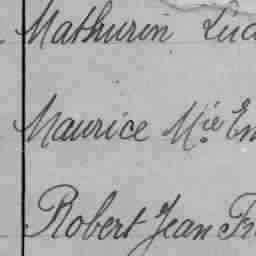 Mathurin Luc
Maurice Mie Em
Robert Jean Fr